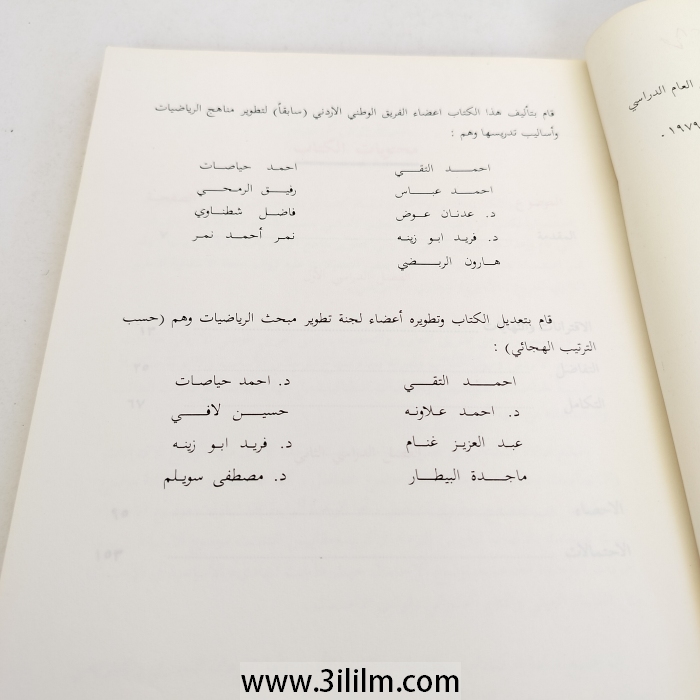 العام الدراسي
١٩٧٩ .
قام بتأليف هذا الكتاب اعضاء الفريق الوطني الاردني (سابقاً) لتطوير مناهج الرياضيات
وأساليب تدريسها وهم :
احمد التقي احمد حياصات
احمد عباس رفيق الرمحي
د. عدنان عوض فاضل شطناوي
د. فريد ابو زينه نمر أحمد نمر
هارون الربضي
قام بتعديل الكتاب وتطويره أعضاء لجنة تطوير مبحث الرياضيات وهم (حسب
الترتيب الهجائي) :
احمد التقي د. احمد حياصات
د. احمد علاونه حسين لافي
عبد العزيز غنام د. فريد ابو زينه
ماجدة البيطار د. مصطفى سويلم
www.3ililm.com